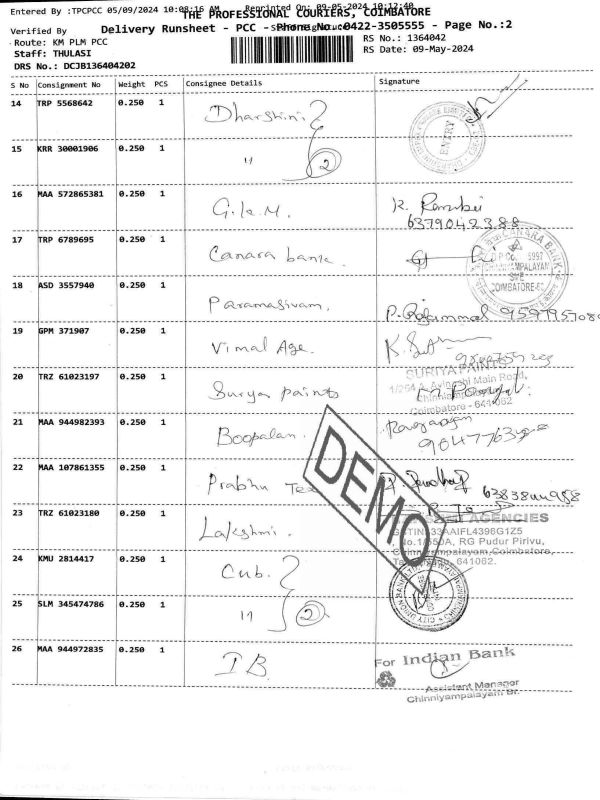 Entered By :TPCPCC 05/09/2024 10:08:16 AM Reprinted On: 09-05-2024 10:12:40
THE PROFESSIONAL COURIERS, COIMBATORE
Verified By
Delivery Runsheet - PCC - Phone No.:0422-3505555 - Page No.:2
Route: KM PLM PCC
RS No.: 1364042
Staff: THULASI
RS Date: 09-May-2024
DRS No.: DCJB136404202
S No Consignment No Weight PCS Consignee Details Signature
14 TRP 5568642 0.250 1 Dharshini
ENTRY
15 KRR 30001906 0.250 1 " 2
16 MAA 572865381 0.250 1 G.K.M. K.
6379042388
17 TRP 6789695 0.250 1 Canara bank.
CANARA BANK
5997
COIMBATORE
18 ASD 3557940 0.250 1 Paramasivam. P. Rajammal
19 GPM 371907 0.250 1 Vimal Age.
SURIYA PAINTS
20 TRZ 61023197 0.250 1 Surya paints
1/264 A, Avinashi Main Road,
Coimbatore - 641 062
21 MAA 944982393 0.250 1 Boopalan.
22 MAA 107861355 0.250 1 Prabhu Tex
23 TRZ 61023180 0.250 1 Lakshmi.
AGENCIES
RG Pudur Pirivu,
Chinniyampalayam, Coimbatore,
641062.
24 KMU 2814417 0.250 1 Cub.
CITY UNION BANK
25 SLM 345474786 0.250 1 " 2
26 MAA 944972835 0.250 1 IB.
For Indian Bank
Assistant Manager
Chinniyampalayam Br.
DEMO